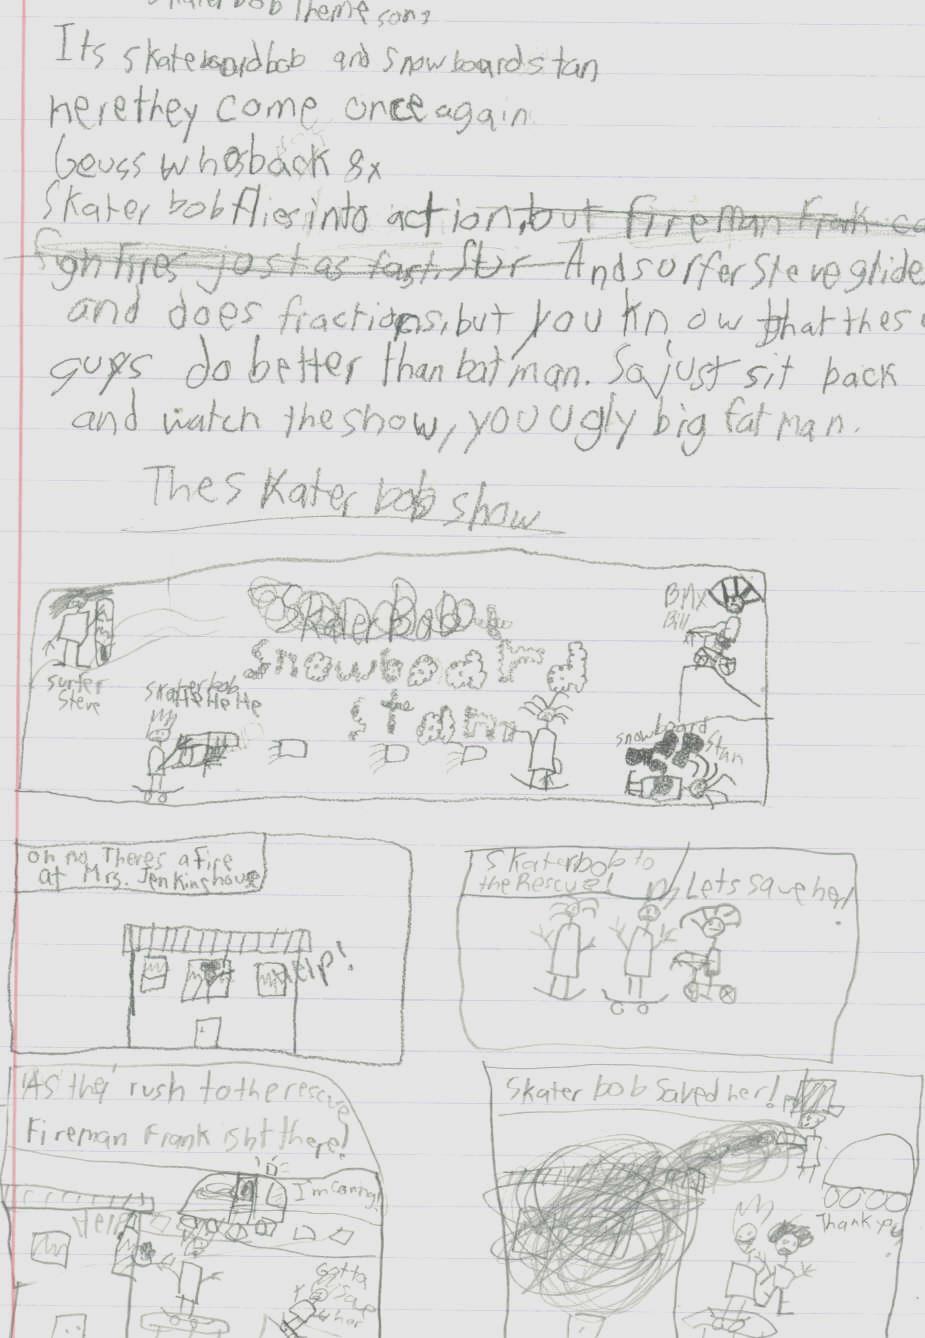 Skaterbob Theme song
Its skateboardbob and snowboardstan
herethey come once again
Geuss whosback 8x
Skater bob fliesinto action, but fireman Frank
fight fires just as fast. And surfer Steve glide
and does fractions, but you know that these
guys do better than batman. So just sit back
and watch the show, you ugly big fat man.
The Skater bob show
BMX
Bill
SkaterBob
Snowboard
Stan
surfer
Steve
skaterbob
snowboard
Stan
oh no Theres a fire
at Mrs. Jenkinghouse
Help!
Skaterbob to
the Rescue!
Lets save her!
As they rush to the rescue
Fireman Frank isht there!
I'm coming!
Help
Gotta
save
her
Skater bob saved her!
Thank you